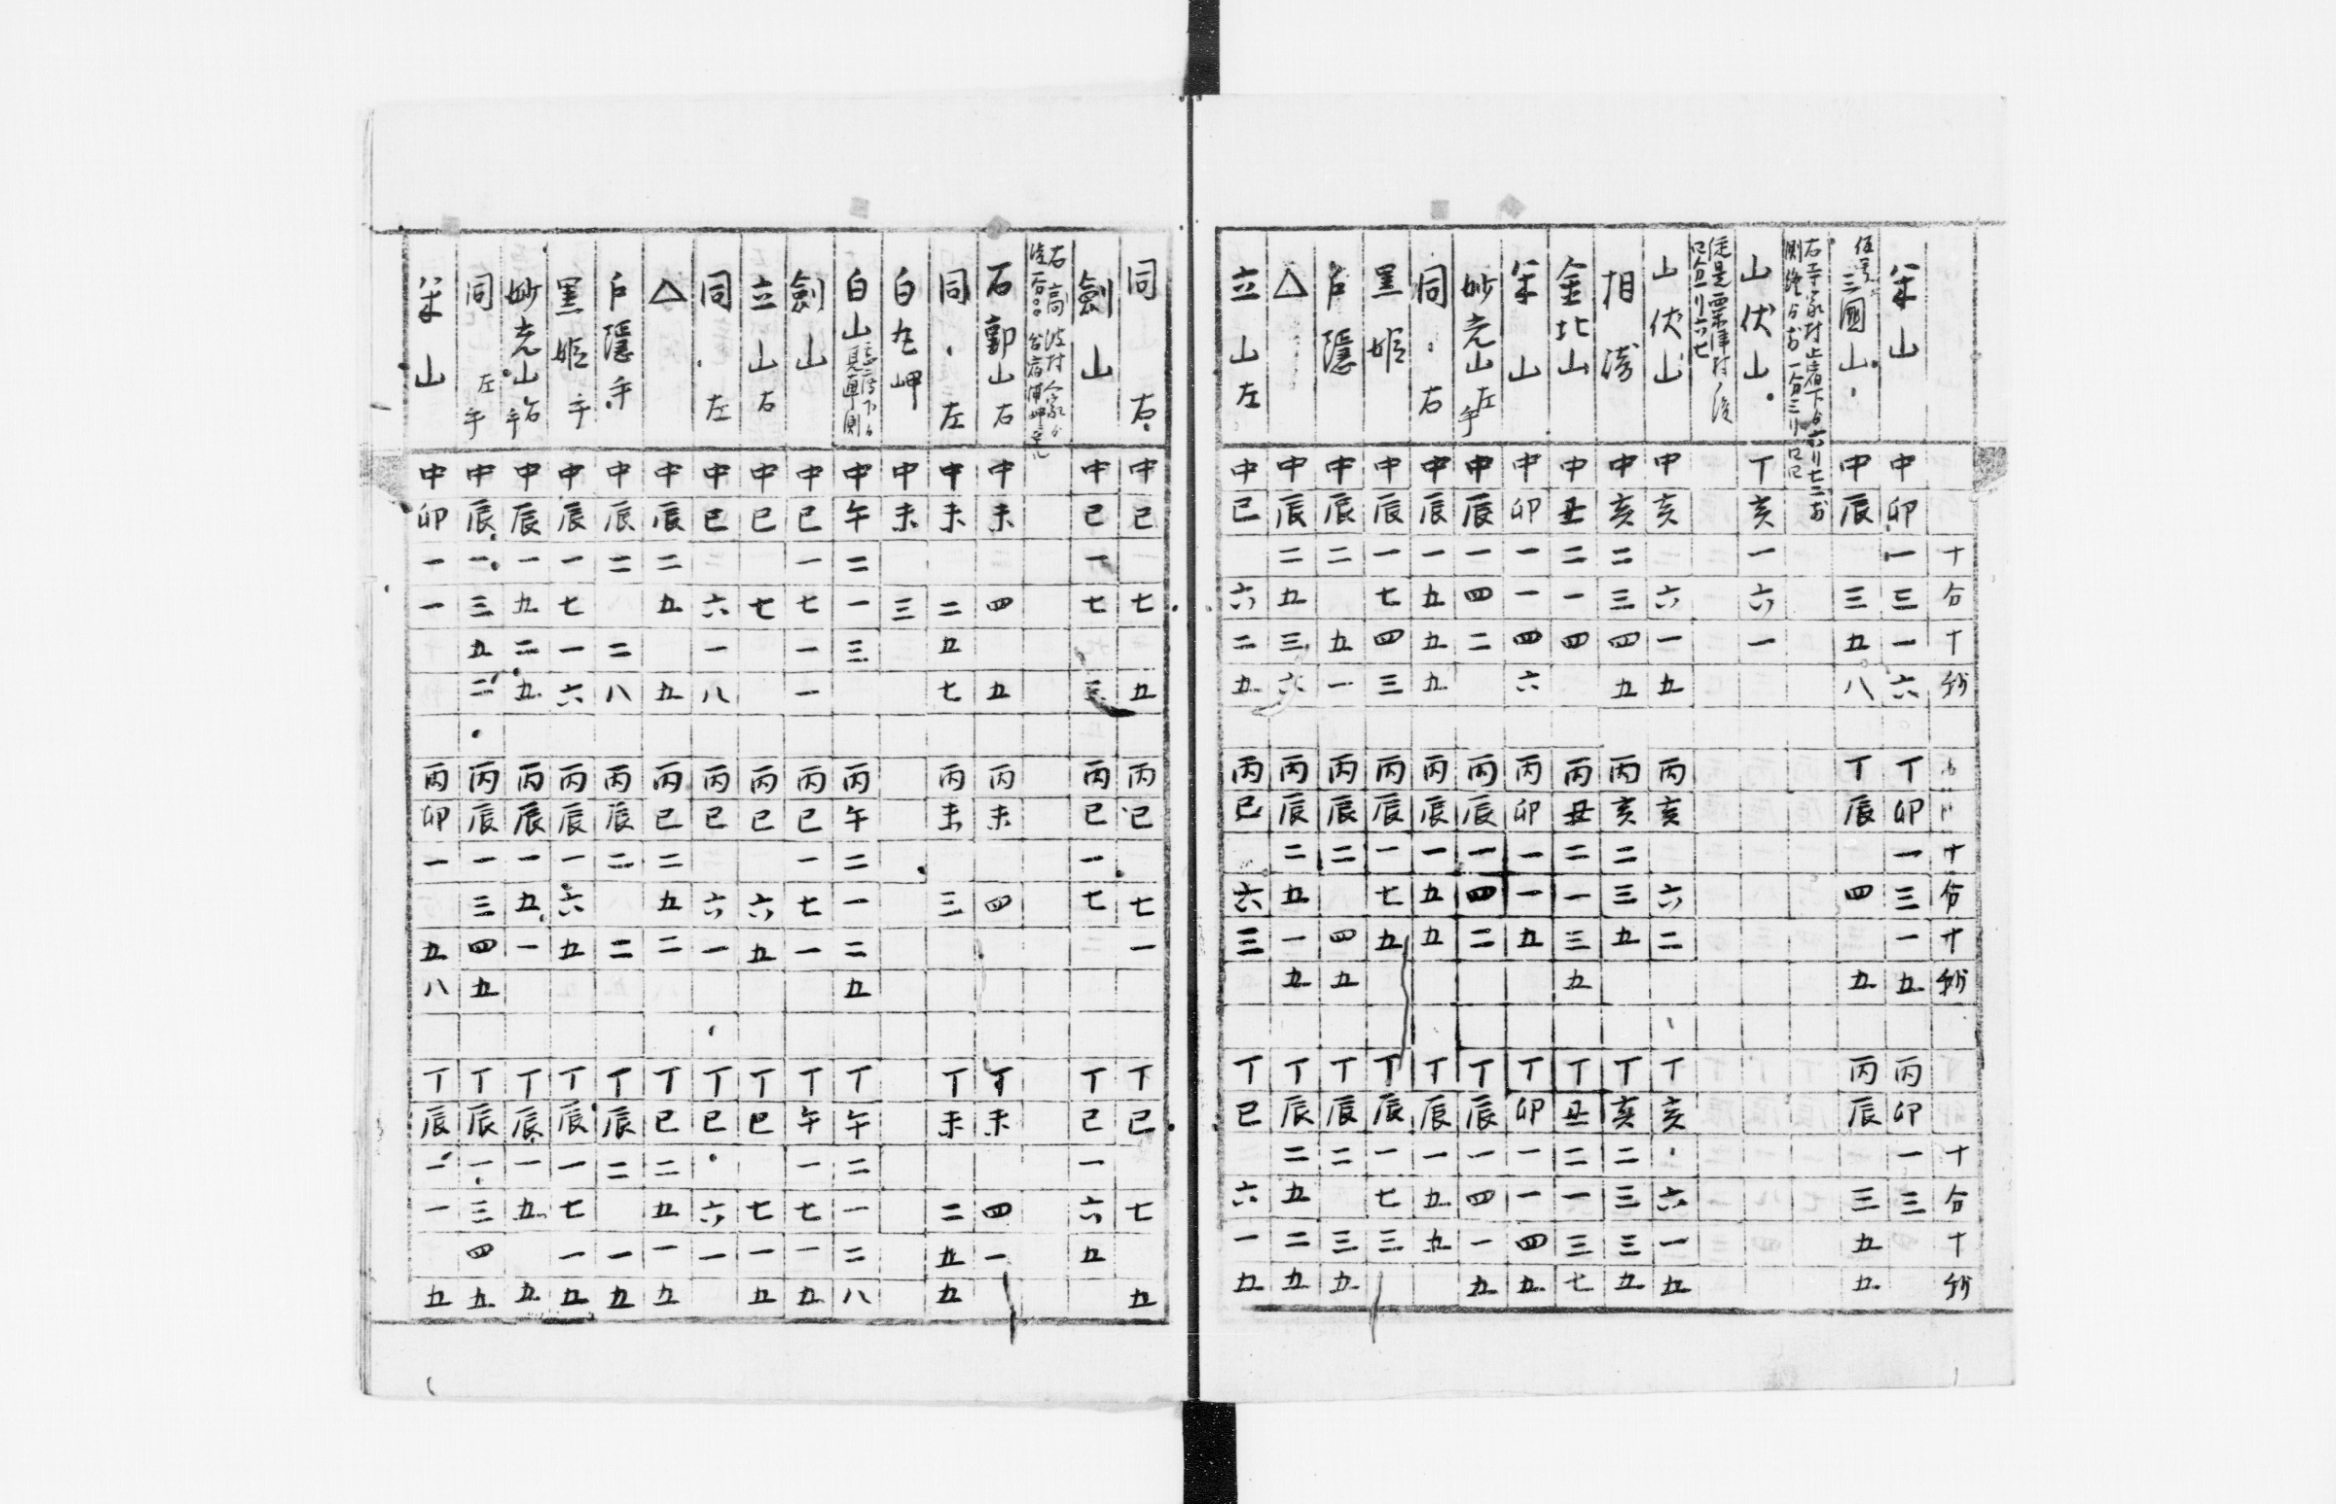 十 分 十 秒 十 分 十 秒 十 分 十 秒
米山 中 卯 一 三 一 六 丁 卯 一 三 一 五 丙 卯 一 三
三國山 中 辰 三 五 八 丁 辰 四 五 丙 辰 三 五 五
山伏山 丁 亥 一 六 一
従是粟津村ノ後
山伏山 中 亥 六 一 五 丙 亥 六 二 丁 亥 六 一 五
相 中 亥 二 三 四 五 丙 亥 二 三 五 丁 亥 二 三 三 五
金北山 中 丑 二 一 四 丙 丑 二 一 三 五 丁 丑 二 一 三 七
米山 中 卯 一 一 四 六 丙 卯 一 一 五 丁 卯 一 一 四 五
妙光山 左手 中 辰 一 四 二 丙 辰 一 四 二 丁 辰 一 四 一 五
同 右 中 辰 一 五 五 九 丙 辰 一 五 五 丁 辰 一 五 九
黒姫 中 辰 一 七 四 三 丙 辰 一 七 五 丁 辰 一 七 三
戸隠 中 辰 二 五 一 丙 辰 二 四 五 丁 辰 二 三 五
△ 中 辰 二 五 三 六 丙 辰 二 五 一 五 丁 辰 二 五 二 五
立山 左 中 巳 六 二 五 丙 巳 六 三 丁 巳 六 一 五
同 右 中 巳 七 五 丙 巳 七 一 丁 巳 七 五
劔山 中 巳 一 七 三 丙 巳 一 七 丁 巳 一 六 五
石郭山 右 中 未 四 五 丙 未 四 丁 未 四 一
同 左 中 未 二 五 七 丙 未 三 丁 未 二 五 五
白 岬 中 未 三
白山 中 午 二 一 三 丙 午 二 一 二 五 丁 午 二 一 二 八
劔山 中 巳 一 七 一 一 丙 巳 一 七 一 丁 午 一 七 一 五
立山 右 中 巳 七 丙 巳 六 五 丁 巳 七 一 五
同 左 中 巳 六 一 八 丙 巳 六 一 丁 巳 六 一
△ 中 辰 二 五 五 丙 巳 二 五 二 丁 巳 二 五 一 五
戸隠 手 中 辰 二 二 八 丙 辰 二 二 丁 辰 二 一 五
黒姫 手 中 辰 一 七 一 六 丙 辰 一 六 五 丁 辰 一 七 一 五
妙光山 右手 中 辰 一 五 二 五 丙 辰 一 五 一 丁 辰 一 五 五
同 左手 中 辰 一 三 五 二 丙 辰 一 三 四 五 丁 辰 一 三 四 五
米山 中 卯 一 一 丙 卯 一 五 八 丁 辰 一 一 五